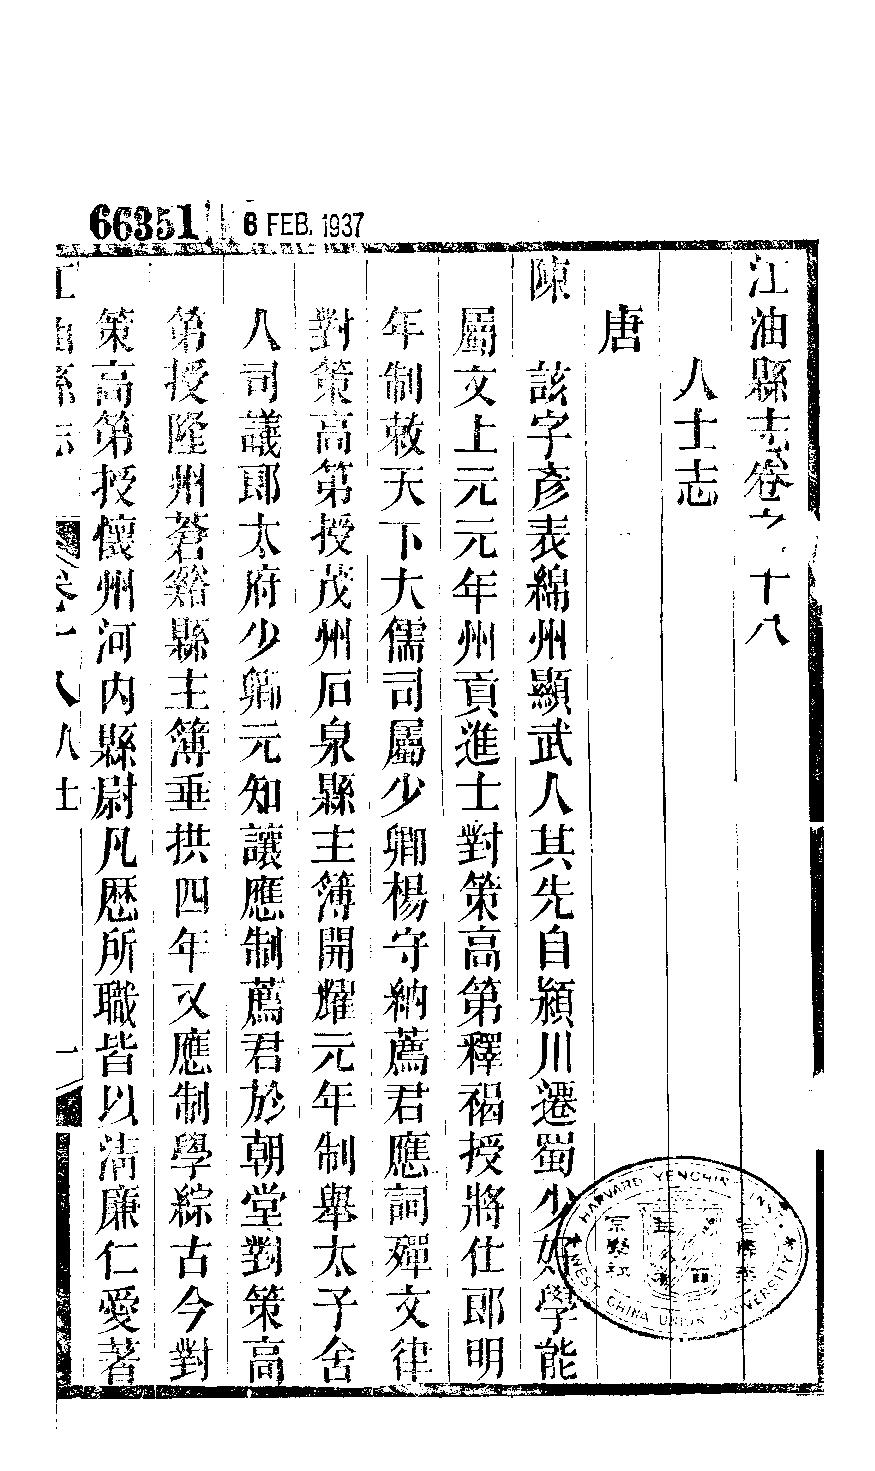 66351 6 FEB. 1937
江油縣志卷之十八
人士志
唐
陳　該字彥表綿州顯武人其先自潁川遷蜀少好學能
屬文上元元年州貢進士對策高第釋褐授將仕郎明
年制敕天下大儒司屬少卿楊守納薦君應詞殫文律
對策高第授茂州石泉縣主簿開耀元年制舉太子舍
人司議郎太府少卿元知讓應制薦君於朝堂對策高
第授隆州蒼谿縣主簿垂拱四年又應制學綜古今對
策高第授懷州河內縣尉凡歷所職皆以清廉仁愛著
江油縣志
卷十八 人士
一
HARVARD YENCHING INST.
WEST CHINA UNION UNIVERSITY